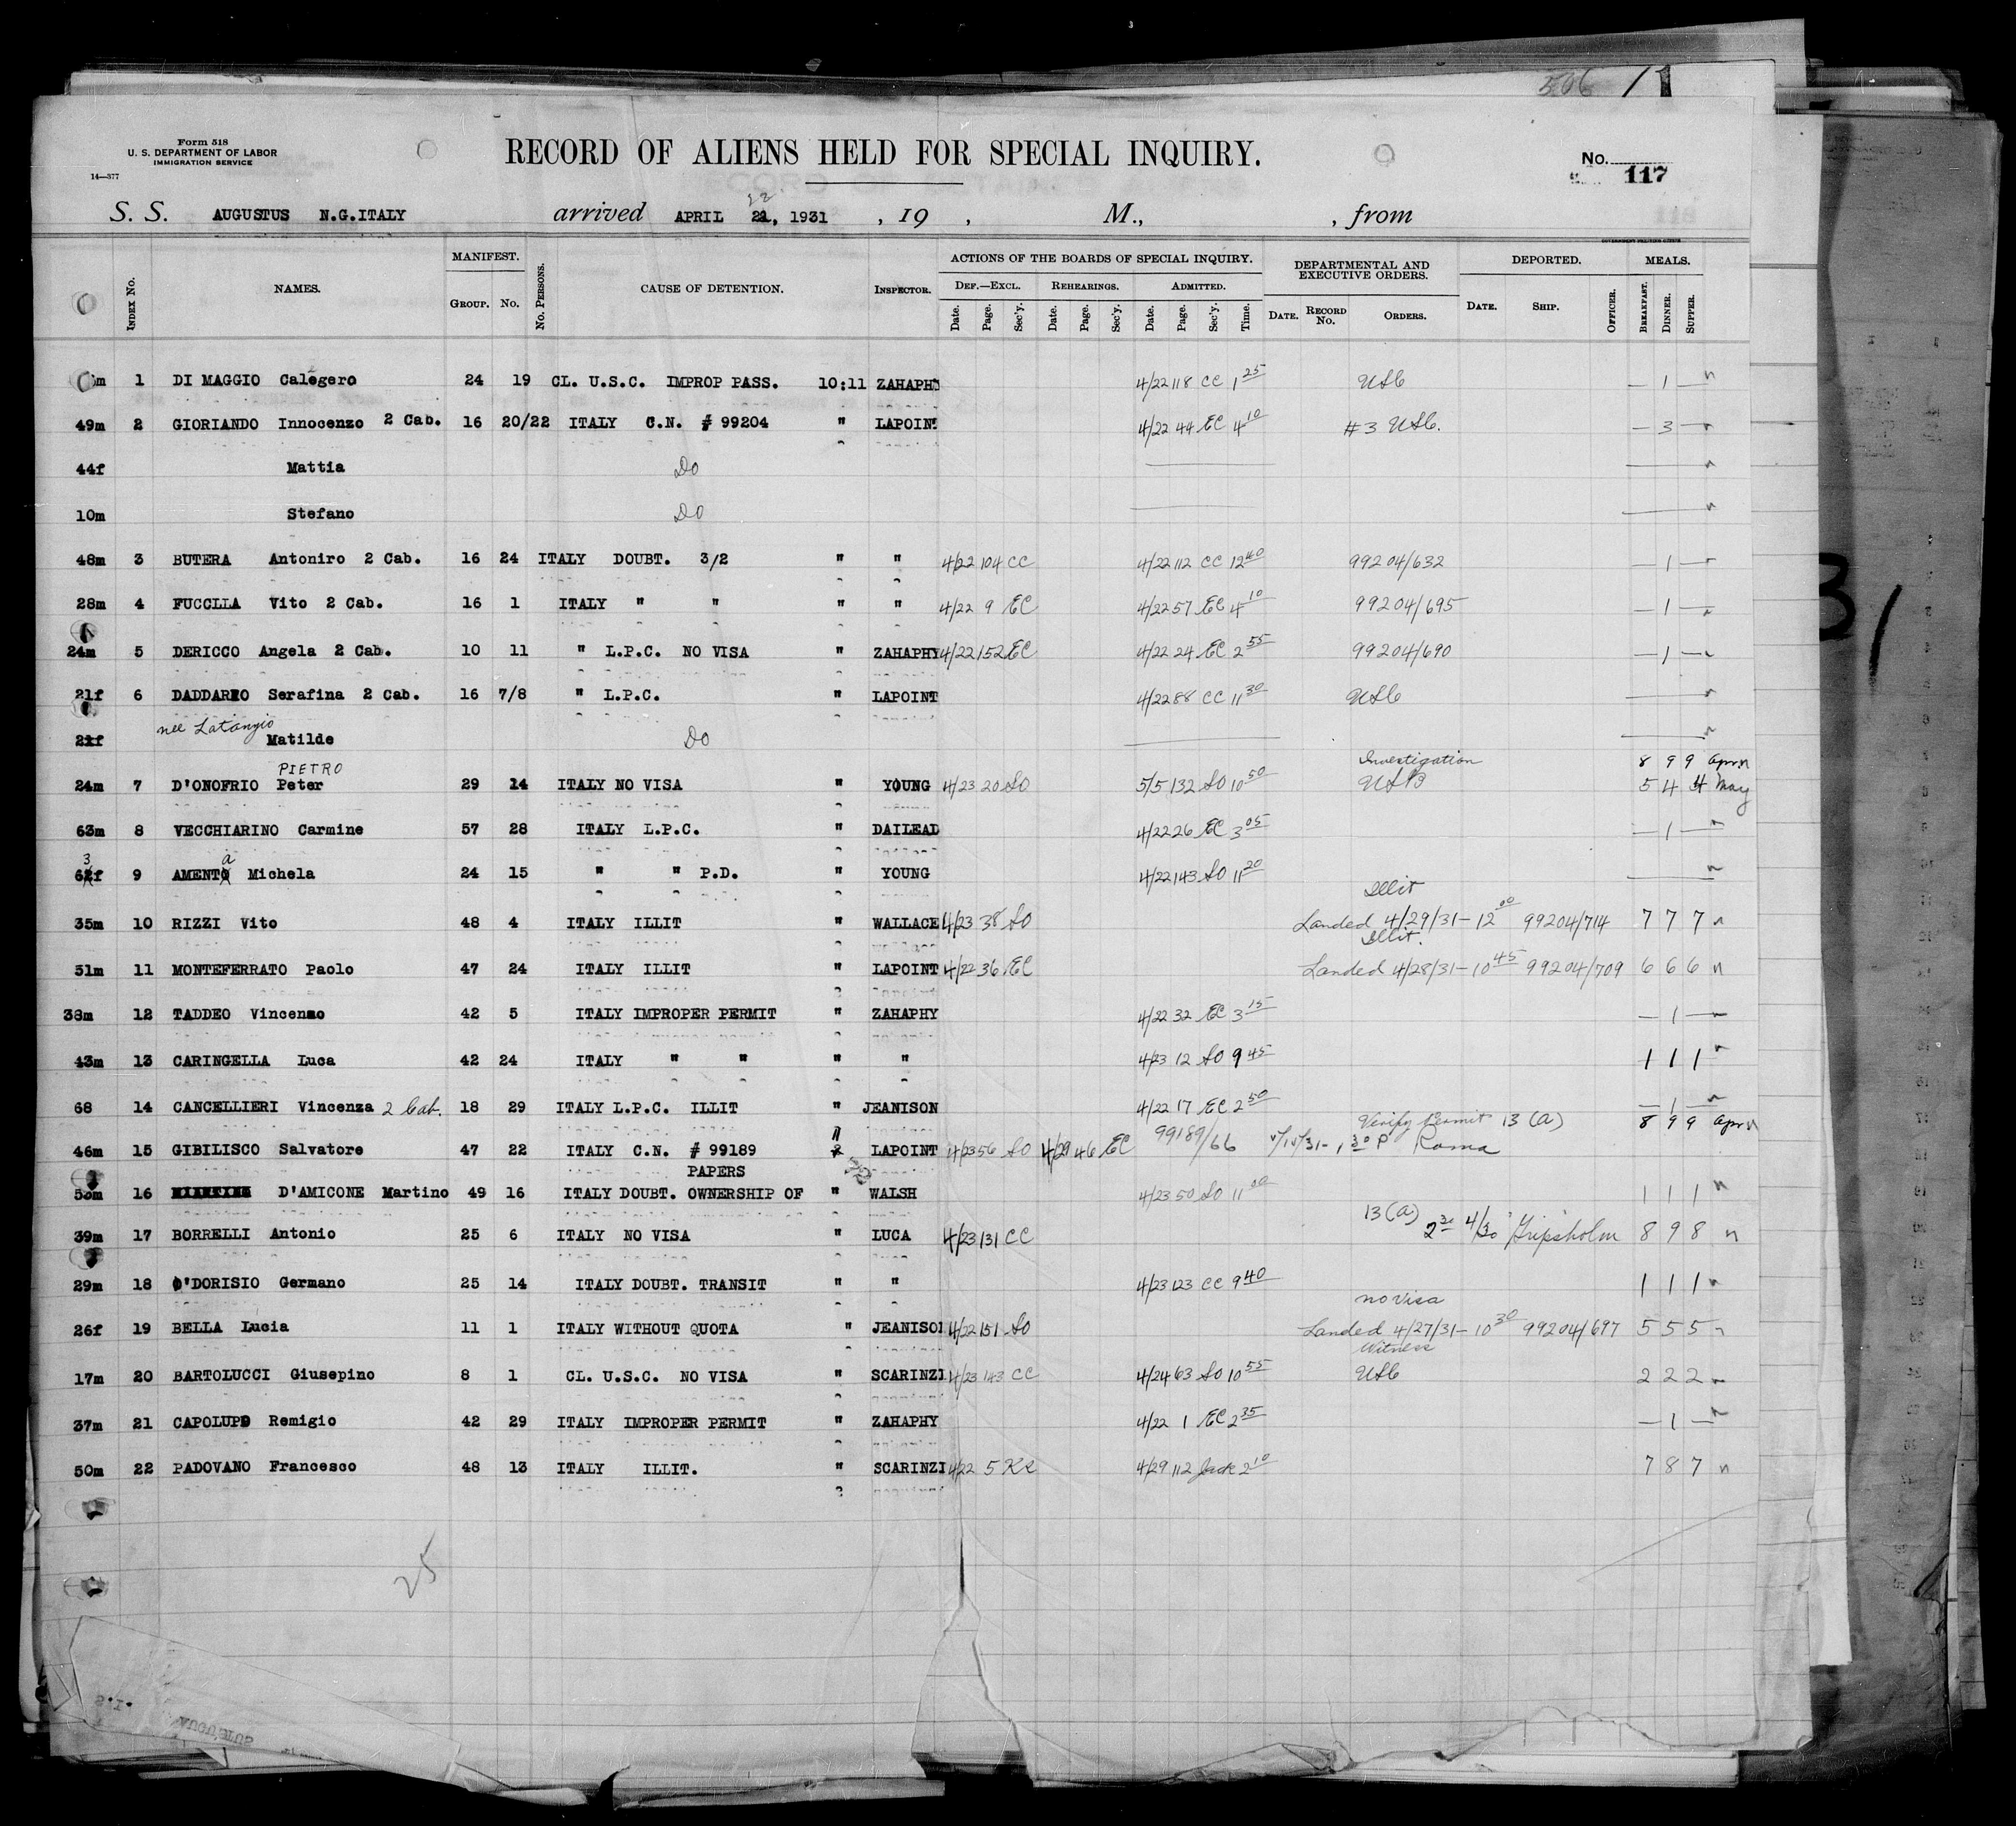 506 / 1
Form 518
U. S. DEPARTMENT OF LABOR
IMMIGRATION SERVICE
14—377
RECORD OF ALIENS HELD FOR SPECIAL INQUIRY.
No. 117
S. S. AUGUSTUS N.G.ITALY arrived APRIL 22, 1931 , 19 , M., , from
INDEX No. NAMES. MANIFEST. GROUP. No. No. PERSONS. CAUSE OF DETENTION. INSPECTOR. ACTIONS OF THE BOARDS OF SPECIAL INQUIRY. DEF.—EXCL. Date. Page. Sec'y. REHEARINGS. Date. Page. Sec'y. ADMITTED. Date. Page. Sec'y. Time. DEPARTMENTAL AND EXECUTIVE ORDERS. DATE. RECORD No. ORDERS. DEPORTED. DATE. SHIP. OFFICER. MEALS. BREAKFAST. DINNER. SUPPER.
m 1 DI MAGGIO Calegero 24 19 CL. U.S.C. IMPROP PASS. 10:11 ZAHAPHY 4/22 118 CC 1 25 USC — 1 —
49m 2 GIORIANDO Innocenzo 2 Cab. 16 20/22 ITALY C.N. # 99204 " LAPOINT 4/22 44 EC 4 10 #3 USC. — 3 —
44f Mattia Do
10m Stefano Do
48m 3 BUTERA Antoniro 2 Cab. 16 24 ITALY DOUBT. 3/2 " " 4/22 104 CC 4/22 112 CC 12 40 99204/632 — 1 —
28m 4 FUCCLLA Vito 2 Cab. 16 1 ITALY " " " " 4/22 9 EC 4/22 57 EC 4 10 99204/695 — 1 —
24m 5 DERICCO Angela 2 Cab. 10 11 " L.P.C. NO VISA " ZAHAPHY 4/22 152 EC 4/22 24 EC 2 55 99204/690 — 1 —
21f 6 DADDARIO Serafina 2 Cab. 16 7/8 " L.P.C. " LAPOINT 4/22 88 CC 11 30 USC
nee Latangio
21f Matilde Do
PIETRO Investigation 8 9 9 Apr
24m 7 D'ONOFRIO Peter 29 14 ITALY NO VISA " YOUNG 4/23 20 SO 5/5 132 SO 10 50 5 4 4 May
63m 8 VECCHIARINO Carmine 57 28 ITALY L.P.C. " DAILEAD 4/22 26 EC 3 05 — 1 —
3 a
62f 9 AMENTO Michela 24 15 " " P.D. " YOUNG 4/22 143 SO 11 20
Illit
35m 10 RIZZI Vito 48 4 ITALY ILLIT " WALLACE 4/23 38 SO Landed 4/29/31 – 12 00 99204/714 7 7 7
Illit.
51m 11 MONTEFERRATO Paolo 47 24 ITALY ILLIT " LAPOINT 4/22 36 EC Landed 4/28/31 – 10 45 99204/709 6 6 6
38m 12 TADDEO Vincenzo 42 5 ITALY IMPROPER PERMIT " ZAHAPHY 4/22 32 EC 3 15 — 1 —
43m 13 CARINGELLA Luca 42 24 ITALY " " " " 4/23 12 SO 9 45 1 1 1
68 14 CANCELLIERI Vincenza 2 Cab. 18 29 ITALY L.P.C. ILLIT " JEANISON 4/22 17 EC 2 50 — 1 —
Verify Permit 13 (a) 8 9 9 Apr
46m 15 GIBILISCO Salvatore 47 22 ITALY C.N. # 99189 " LAPOINT 4/23 56 SO 4/29 46 EC 99189/66 1 30 P Roma
PAPERS
53m 16 D'AMICONE Martino 49 16 ITALY DOUBT. OWNERSHIP OF " WALSH 4/23 50 SO 11 00 1 1 1
13 (a)
39m 17 BORRELLI Antonio 25 6 ITALY NO VISA " LUCA 4/23 131 CC 2 30 4/30 "Gripsholm 8 9 8
29m 18 D'DORISIO Germano 25 14 ITALY DOUBT. TRANSIT " " 4/23 123 CC 9 40 1 1 1
no visa
26f 19 BELLA Lucia 11 1 ITALY WITHOUT QUOTA " JEANISON 4/22 151 SO Landed 4/27/31 – 10 30 99204/697 5 5 5
Witness
17m 20 BARTOLUCCI Giusepino 8 1 CL. U.S.C. NO VISA " SCARINZI 4/23 143 CC 4/24 63 SO 10 55 USC 2 2 2
37m 21 CAPOLUPO Remigio 42 29 ITALY IMPROPER PERMIT " ZAHAPHY 4/22 1 EC 2 35 — 1 —
50m 22 PADOVANO Francesco 48 13 ITALY ILLIT. " SCARINZI 4/22 5 4/29 112 Jack 2 10 7 8 7
25